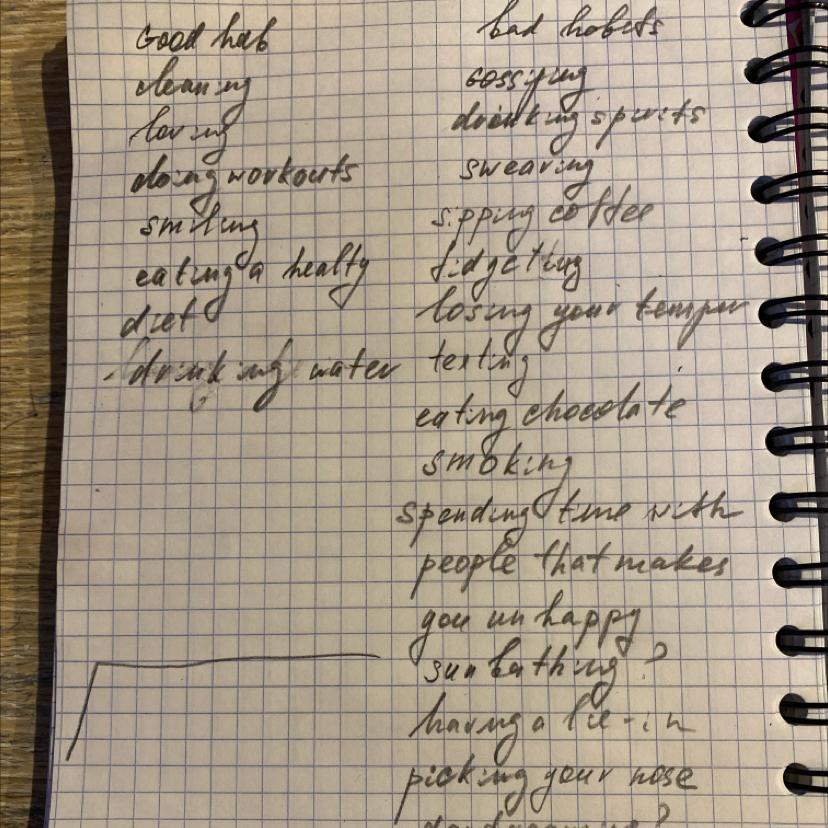 Good hab
cleaning
loving
doing workouts
smiling
eating a healty
diet
drinking water
bad habits
gossiping
drinking spirits
swearing
sipping coffee
fidgeting
losing your temper
texting
eating chocolate
smoking
spending time with
people that makes
you unhappy
sunbathing?
having a lie-in
picking your nose